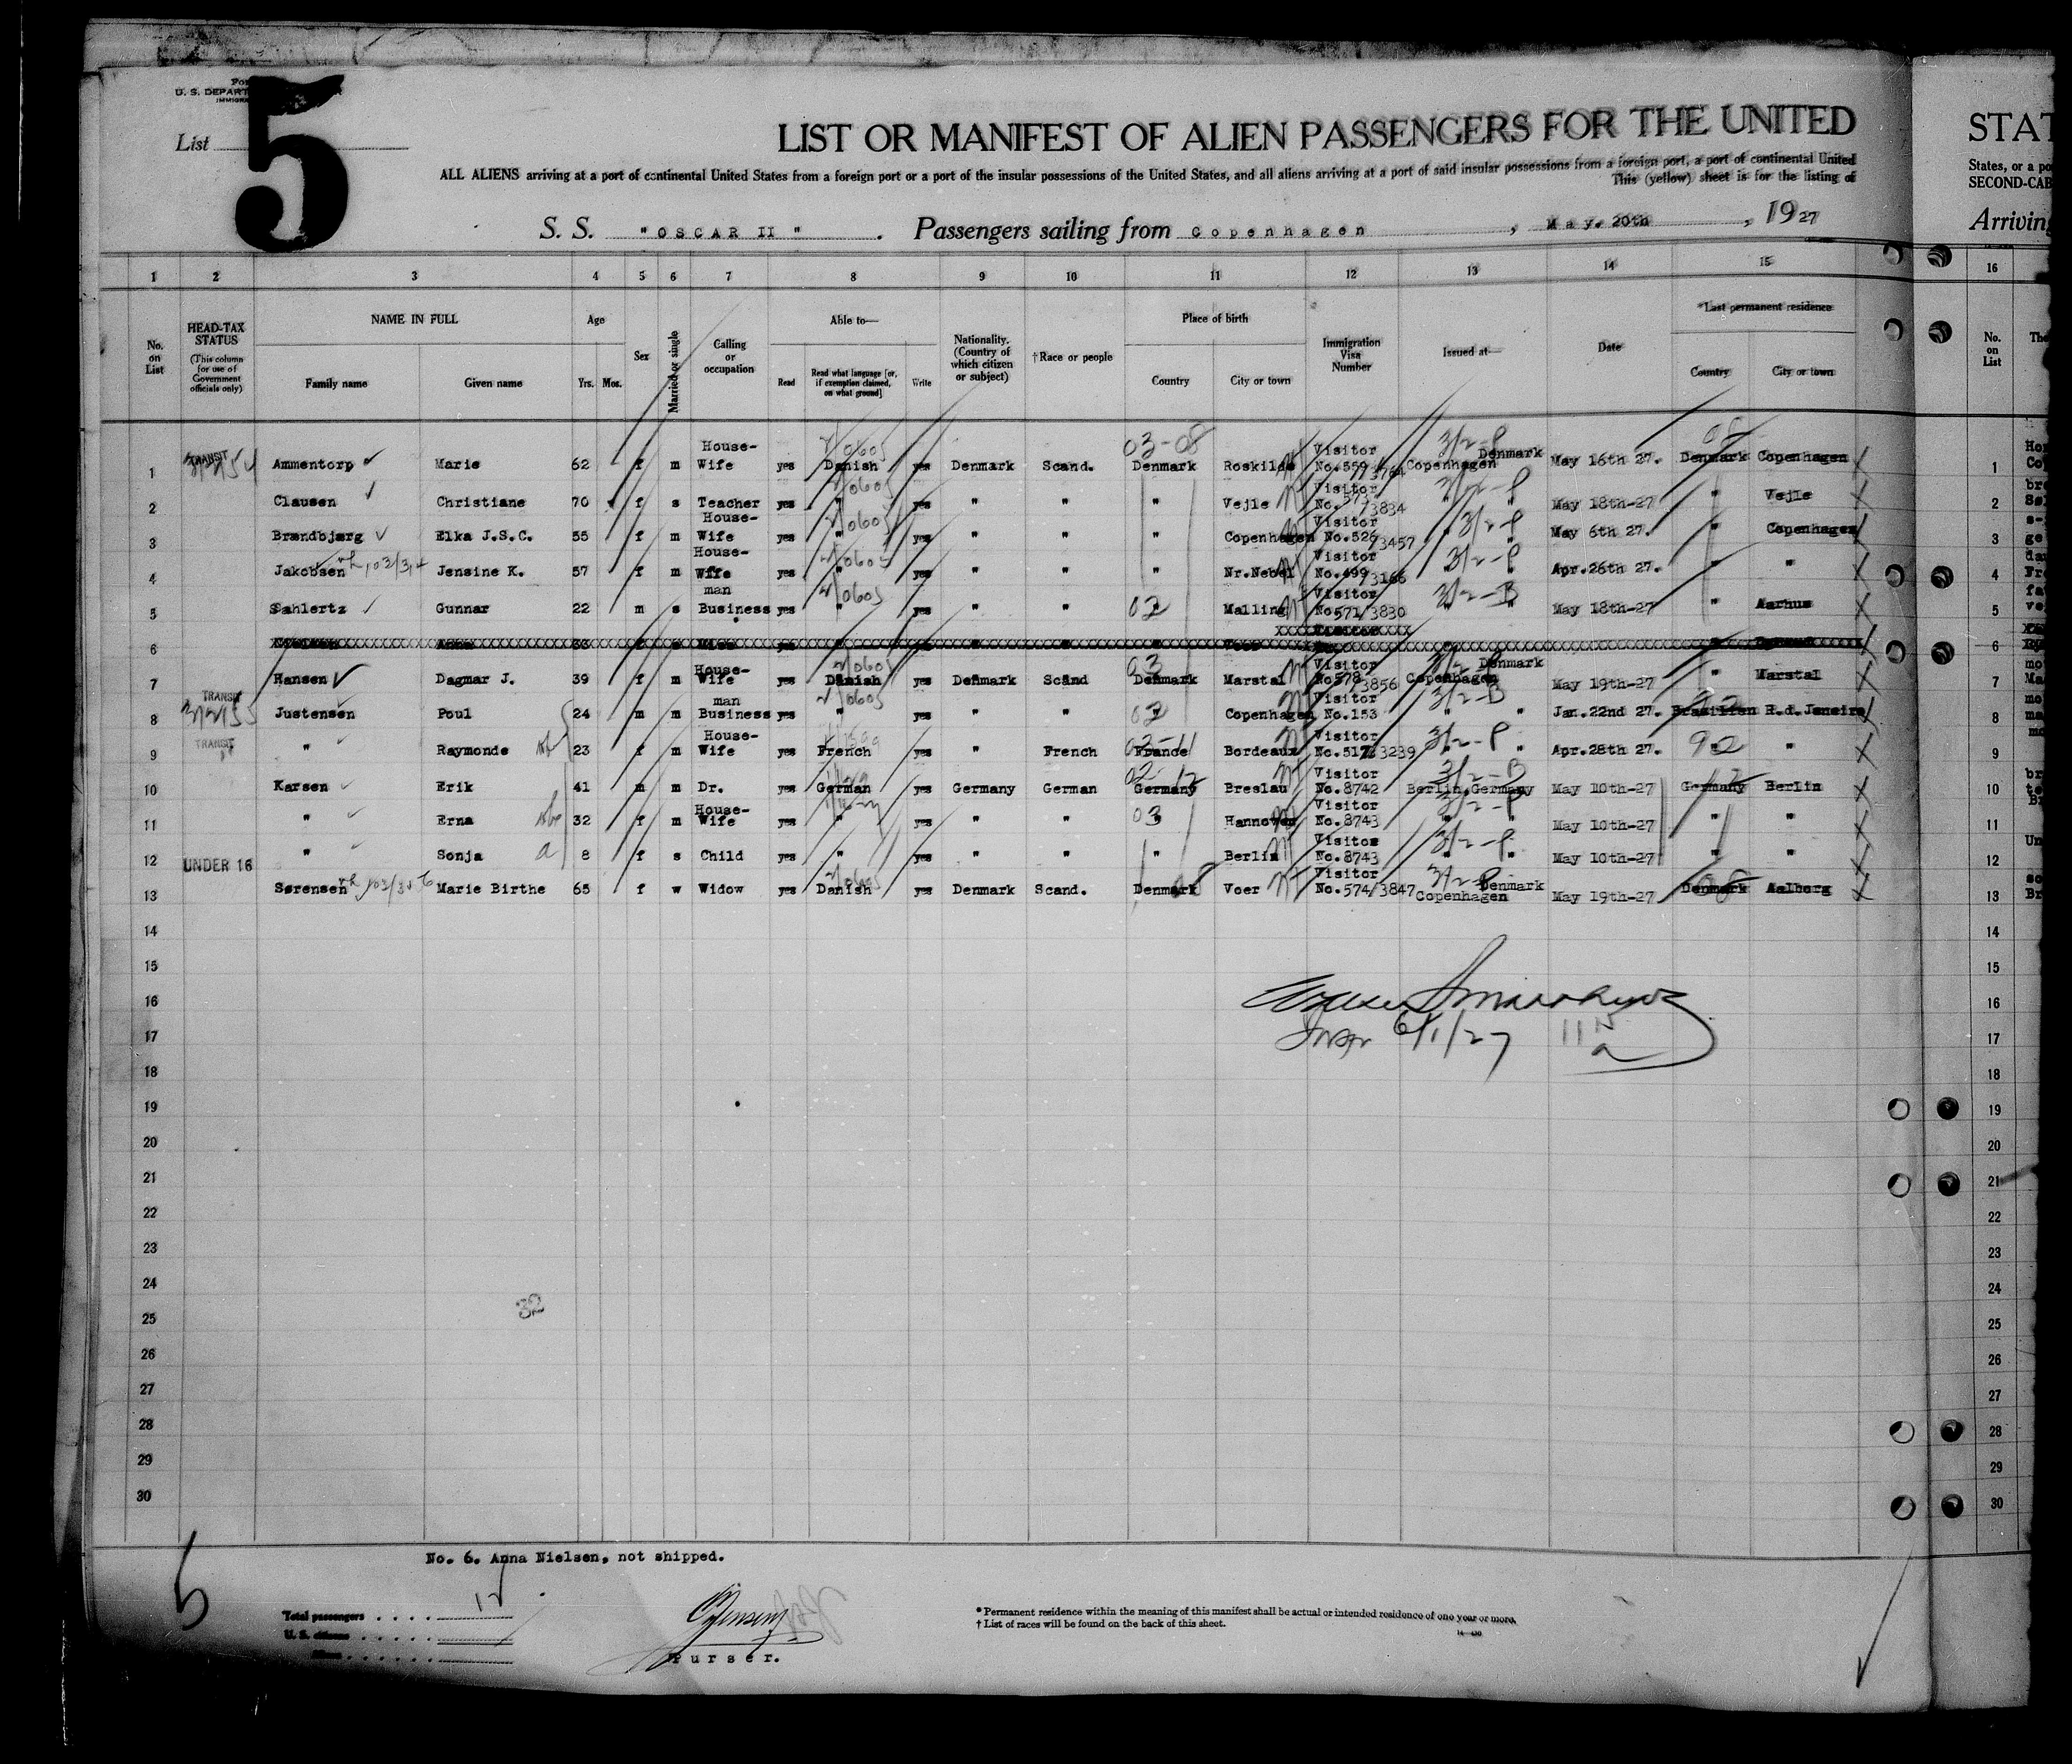 For
U. S. DEPART
IMMIGRA
List
5
LIST OR MANIFEST OF ALIEN PASSENGERS FOR THE UNITED
ALL ALIENS arriving at a port of continental United States from a foreign port or a port of the insular possessions of the United States, and all aliens arriving at a port of said insular possessions from a foreign port, a port of continental United
This (yellow) sheet is for the listing of
S. S. "OSCAR II". Passengers sailing from Copenhagen, May. 20th, 1927
STAT
States, or a po
SECOND-CAB
Arriving
1 2 3 4 5 6 7 8 9 10 11 12 13 14 15 16
No. on List
HEAD-TAX STATUS
(This column for use of Government officials only)
NAME IN FULL
Family name Given name
Age
Yrs. Mos.
Sex
Married or single
Calling or occupation
Able to—
Read Read what language [or, if exemption claimed, on what ground] Write
Nationality. (Country of which citizen or subject)
†Race or people
Place of birth
Country City or town
Immigration Visa Number
Issued at—
Date
*Last permanent residence
Country City or town
No. on List
The
1 TRANSIT Ammentorp Marie 62 f m House-Wife yes Danish yes Denmark Scand. Denmark 03-08 Roskilde Visitor No.559 Copenhagen Denmark 3/2-P May 16th 27. Denmark Copenhagen 1
2 Clausen Christiane 70 f s Teacher yes " yes " " " Vejle Visitor No. 573/3834 " " 3/2-P May 18th-27 " Vejle 2
3 Brandbjærg Elka J.S.C. 55 f m House-Wife yes " yes " " " Copenhagen Visitor No.526/3457 3/2-P May 6th 27. " Copenhagen 3
4 Jakobsen Jensine K. 57 f m House-Wife yes " yes " " " Nr.Nebel Visitor No.499/3166 3/2-P Apr.26th 27. " " 4
5 Sahlertz Gunnar 22 m s Business man yes " yes " " " 02 Malling Visitor No571/3830 3/2-B May 18th-27 " Aarhus 5
6 6
7 Hansen Dagmar J. 39 f m House-Wife yes Danish yes Denmark Scand Denmark 03 Marstal Visitor No578/3856 Copenhagen Denmark May 19th-27 " Marstal 7
8 TRANSIT Justensen Poul 24 m m Business man yes " yes " " " Copenhagen Visitor No.153 " " 3/2-B Jan.22nd 27. Brasilien R.d.Janeiro 8
9 TRANSIT " Raymonde 23 f m House-Wife yes French yes " French France Bordeaux Visitor No.517/3239 3/2-P " Apr.28th 27. " 90 " 9
10 Karsen Erik 41 m m Dr. yes German yes Germany German Germany Breslau Visitor No.8742 Berlin Germany 3/2-B May 10th-27 Germany Berlin 10
11 " Erna 32 f m House-Wife yes " yes " " 03 Hannover Visitor No.8743 " " 3/2-P May 10th-27 " " 11
12 UNDER 16 " Sonja 8 f s Child yes " yes " " " Berlin Visitor No.8743 " " 3/2-P May 10th-27 " " 12
13 Sørensen Marie Birthe 65 f w Widow yes Danish yes Denmark Scand. Denmark Voer Visitor No.574/3847 Copenhagen Denmark 3/2-P May 19th-27 Denmark Aalborg 13
14 14
15 15
16 16
17 6/1/27 17
18 18
19 19
20 20
21 21
22 22
23 23
24 24
32
25 25
26 26
27 27
28 28
29 29
30 30
No. 6. Anna Nielsen, not shipped.
5
Total passengers 12
U. S. citizens
Aliens
Purser.
* Permanent residence within the meaning of this manifest shall be actual or intended residence of one year or more.
† List of races will be found on the back of this sheet.